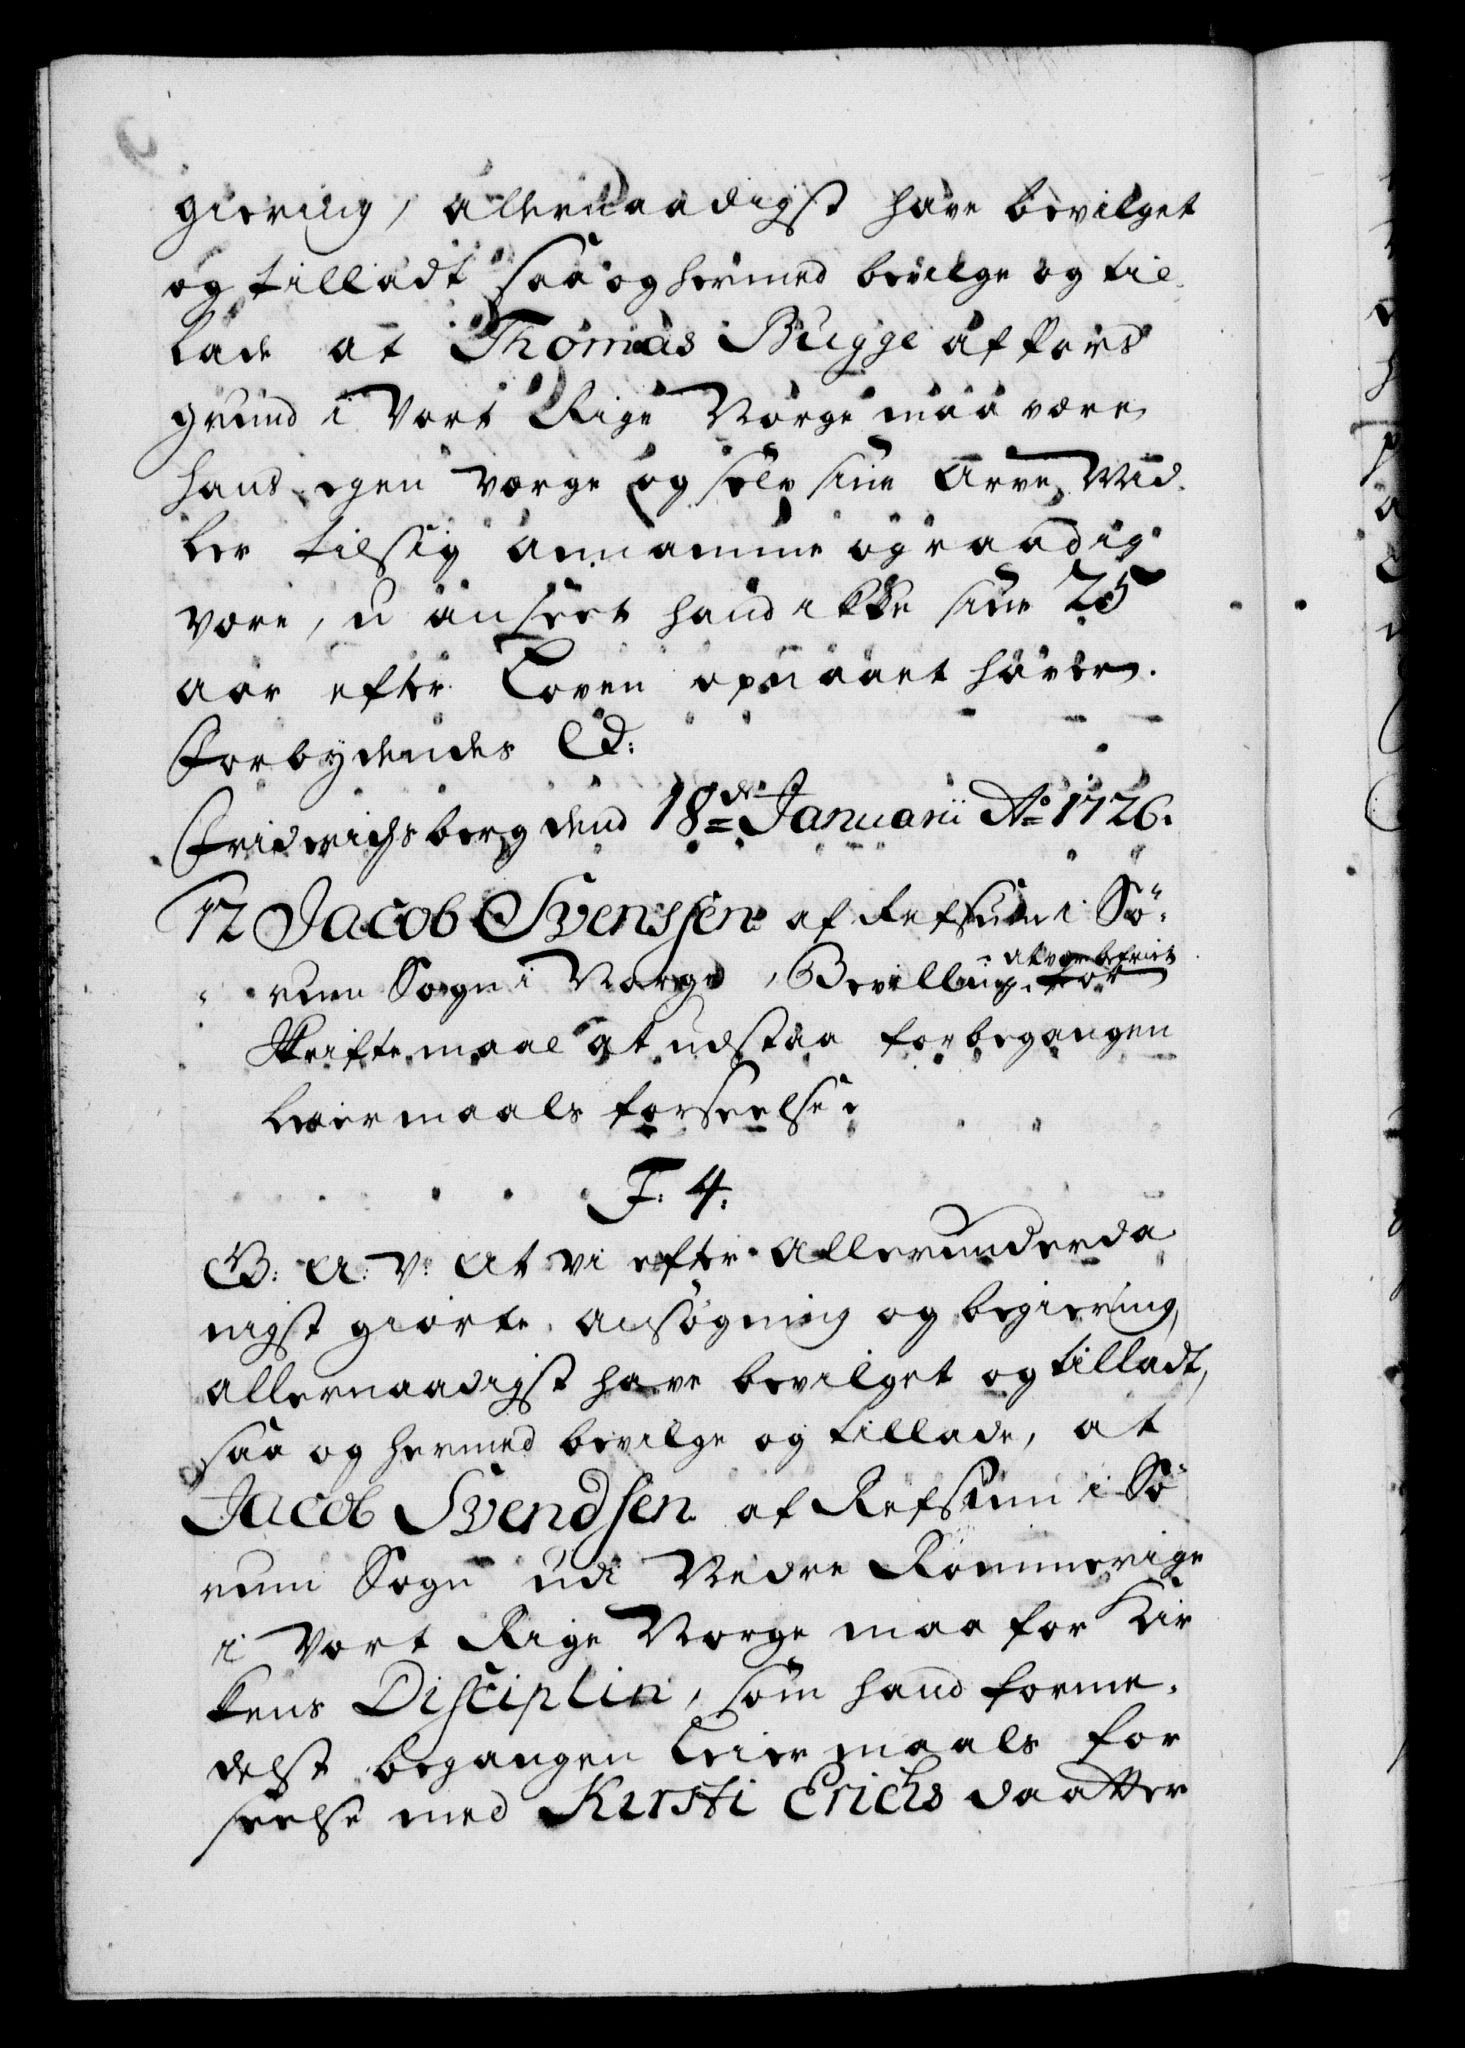 giering, allernaadigst have bevilget
og tilladt, saa og hermed bevilge og til
lade at Thomas Bugge af Pors
grund i Vort Rige Norge maa være
hans egen værge og selv sine Arve Mid
ler til sig annamme og raadig
være, u anseet hand ikke sine 25
aar efter Loven opnaaet haver.
Forbydendes &:
Friderichsberg dend 18de Januarii Ao 1726.
12 Jacob Svenssen af Refsum i Sö-
rum Sogn i Norge, Bevilling at vær befriet for
Skriftemaal at udstaa for begangen
Leiermaals forseelse
F: 4:
G: A: V: At vi efter allerunderda
nigst giorte ansøgning og begiering,
allernaadigst have bevilget og tilladt,
saa og hermed bevilge og tillade, at
Jacob Svendsen af Refsum i Sö
rum Sogn udi Nedre Rommerige
i Vort Rige Norge maa for Kir
kens Disciplin, som hand forme-
delst begangen Leiermaals for
seelse med Kirsti Erichs daatter